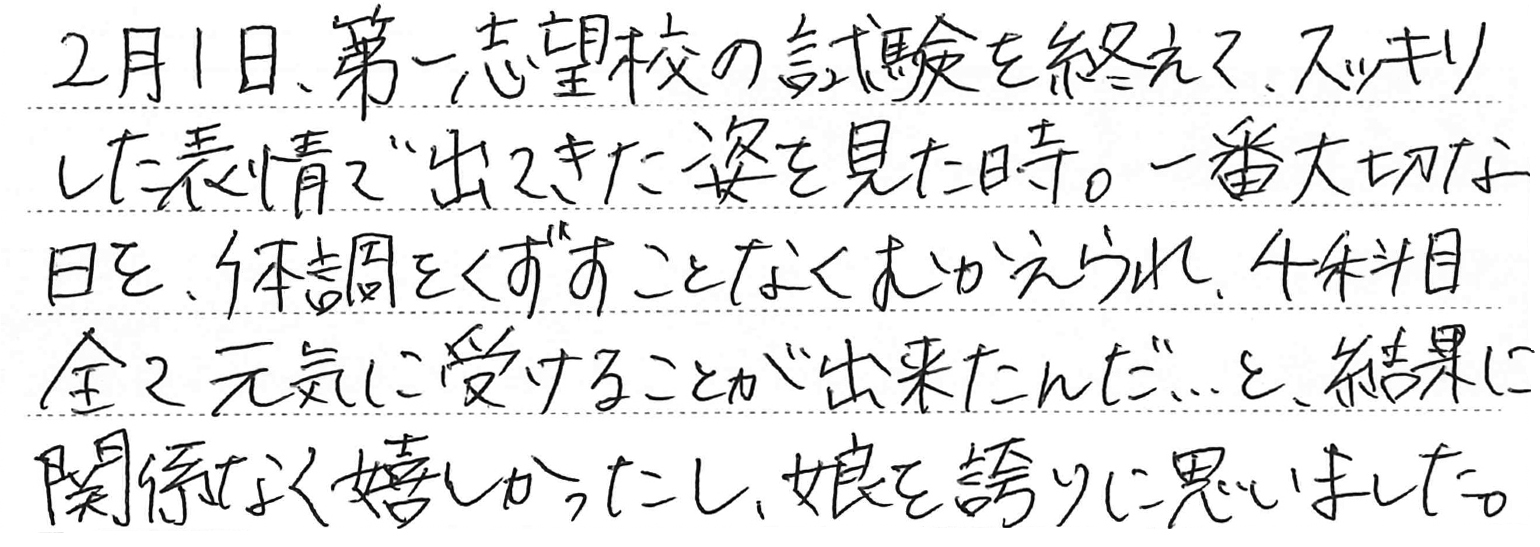 2月1日、第一志望校の試験を終えて、スッキリ
した表情で出てきた姿を見た時。一番大切な
日を、体調をくずすことなくむかえられ、4科目
全て元気に受けることが出来たんだ…と、結果に
関係なく嬉しかったし、娘を誇りに思いました。